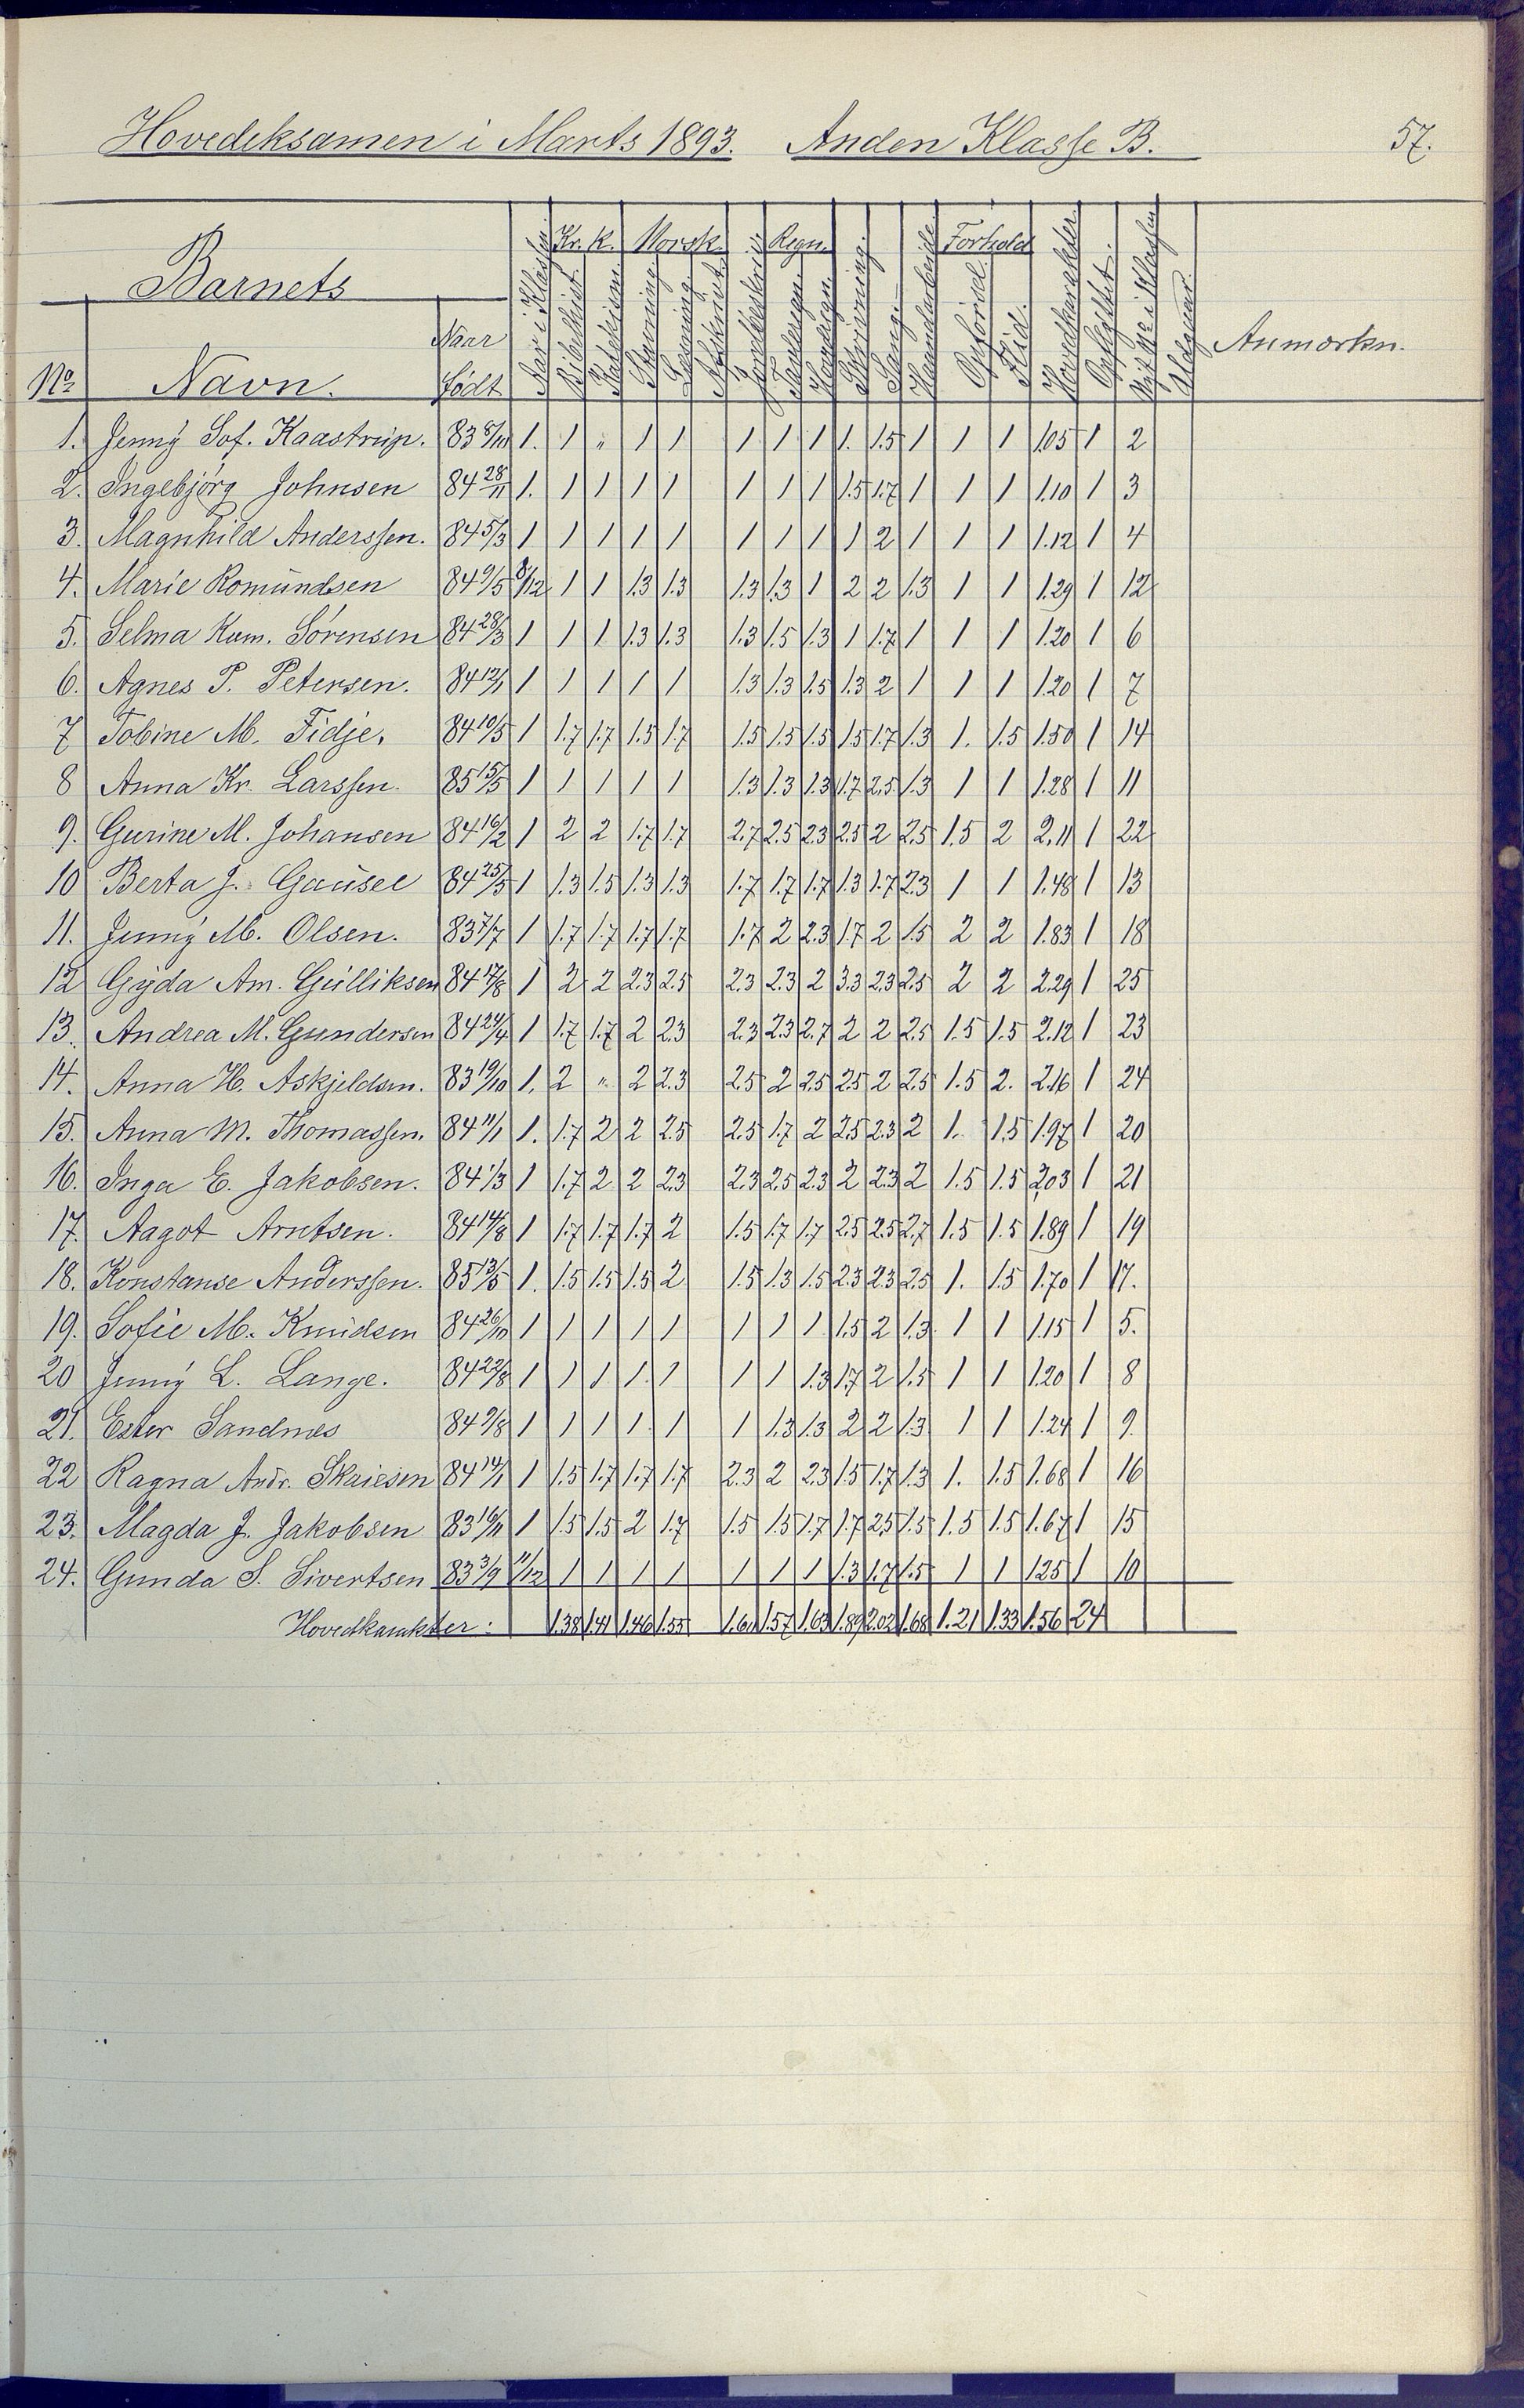 Hovedeksamen i Marts 1893. Anden Klasse B. 57.
Kr. K. Norsk. Regn. Forhold
Barnets
Aar i Klassen Bibelhist. Katekism. Læsning Afskrivn. Tavleregn. Hovedregn. Skrivning. Sang. Haandarbeide Opførsel. Flid. Hovedkarakter. Opflyttet. Nyt No i Klassen Udgaaet.
Naar
No Navn. Født Anmærkn.
1. Jenny Sof. Kaastrup. 83 8/11 1. 1 " 1 1 1 1 1 1. 1.5 1 1 1 1.05 1 2
2. Ingebjörg Johnsen 84 28/11 1. 1 1 1 1 1 1 1 1.5 1.7 1 1 1 1.10 1 3
3. Magnhild Anderssen. 84 5/3 1 1 1 1 1 1 1 1 1 2 1 1 1 1.12 1 4
4. Marie Romundsen 84 9/5 8/12 1 1 1.3 1.3 1.3 1.3 1 2 2 1.3 1 1 1.29 1 12
5. Selma Kum. Sörensen 84 28/3 1 1 1 1.3 1.3 1.3 1.5 1.3 1 1.7 1 1 1 1.20 1 6
6. Agnes P. Petersen. 84 12/1 1 1 1 1 1 1.3 1.3 1.5 1.3 2 1 1 1 1.20 1 7
7 Tobine M. Fidje. 84 10/5 1 1.7 1.7 1.5 1.7 1.5 1.5 1.5 1.5 1.7 1.3 1. 1.5 1.50 1 14
8 Anna Kr. Larssen. 85 15/5 1 1 1 1 1 1.3 1.3 1.3 1.7 2.5 1.3 1 1 1.28 1 11
9. Gurine M. Johansen 84 16/2 1 2 2 1.7 1.7 2.7 2.5 2.3 2.5 2 2.5 1.5 2 2.11 1 22
10 Berta J. Gausel 84 25/5 1 1.3 1.5 1.3 1.3 1.7 1.7 1.7 1.3 1.7 2.3 1 1 1.48 1 13
11. Jenny M. Olsen. 83 7/7 1 1.7 1.7 1.7 1.7 1.7 2 2.3 1.7 2 1.5 2 2 1.83 1 18
12 Gyda Am. Gulliksen 84 17/8 1 2 2 2.3 2.5 2.3 2.3 2 3.3 2.3 2.5 2 2 2.29 1 25
13. Andrea M. Gundersen 84 24/4 1 1.7 1.7 2 2.3 2.3 2.3 2.7 2 2 2.5 1.5 1.5 2.12 1 23
14. Anna H. Askjeldsen. 83 19/10 1. 2 " 2 2.3 2.5 2 2.5 2.5 2 2.5 1.5 2. 2.16 1 24
15. Anna M. Thomassen. 84 11/1 1. 1.7 2 2 2.5 2.5 1.7 2 2.5 2.3 2 1. 1.5 1.97 1 20
16. Inga E. Jakobsen. 84 1/3 1 1.7 2 2 2.3 2.3 2.5 2.3 2 2.3 2 1.5 1.5 2.03 1 21
17. Aagot Arntsen. 84 14/8 1 1.7 1.7 1.7 2 1.5 1.7 1.7 2.5 2.5 2.7 1.5 1.5 1.89 1 19
18. Konstanse Anderssen. 85 13/5 1. 1.5 1.5 1.5 2 1.5 1.3 1.5 2.3 2.3 2.5 1. 1.5 1.70 1 17.
19. Sofie M. Knudsen 84 26/10 1 1 1 1 1 1 1 1 1.5 2 1.3 1 1 1.15 1 5.
20 Jenny L. Lange. 84 22/8 1 1 1 1. 1 1 1 1.3 1.7 2 1.5 1 1 1.20 1 8
21. Ester Sandnes 84 9/8 1 1 1 1 1 1 1.3 1.3 2 2 1.3 1 1 1.24 1 9
22 Ragna Andr. Skaiesen 84 14/1 1 1.5 1.7 1.7 1.7 2.3 2 2.3 1.5 1.7 1.3 1. 1.5 1.68 1 16
23. Magda J. Jakobsen 83 16/11 1 1.5 1.5 2 1.7 1.5 1.5 1.7 1.7 2.5 1.5 1.5 1.5 1.67 1 15
24. Gunda S. Sivertsen 83 3/9 11/12 1 1 1 1 1 1 1 1.3 1.7 1.5 1 1 1.25 1 10
Hovedkarakter: 1.38 1.41 1.46 1.55 1.61 1.57 1.63 1.89 2.02 1.68 1.21 1.33 1.56 24